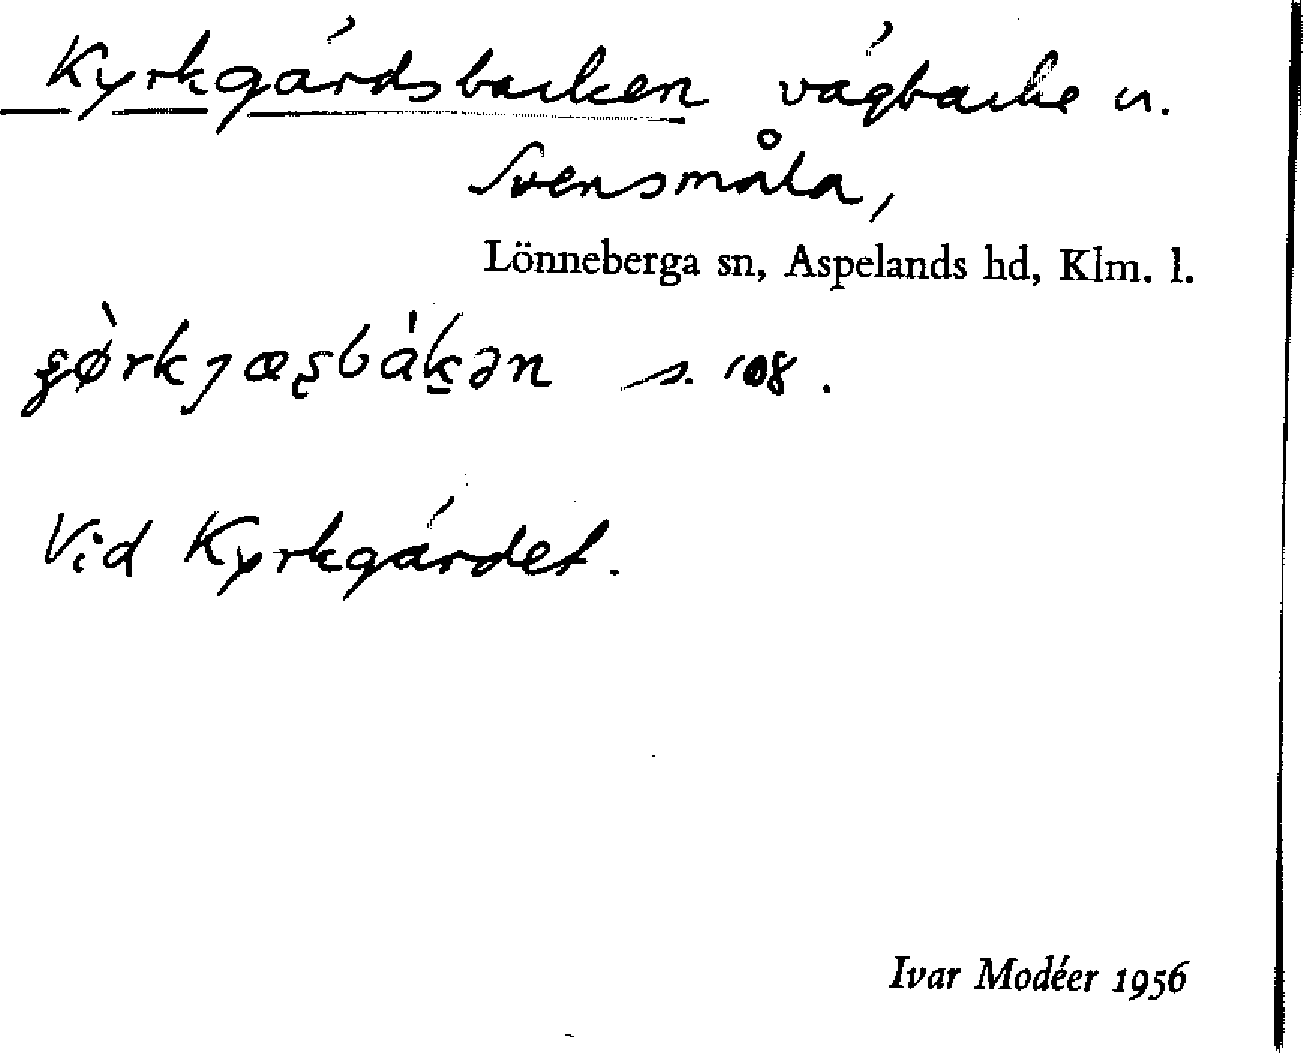 Kyrkgärdsbacken vägbacke u.
Svensmåla,
Lönneberga sn, Aspelands hd, Klm. l.
s. 108.
Vid Kyrkgärdet.
Ivar Modéer 1956